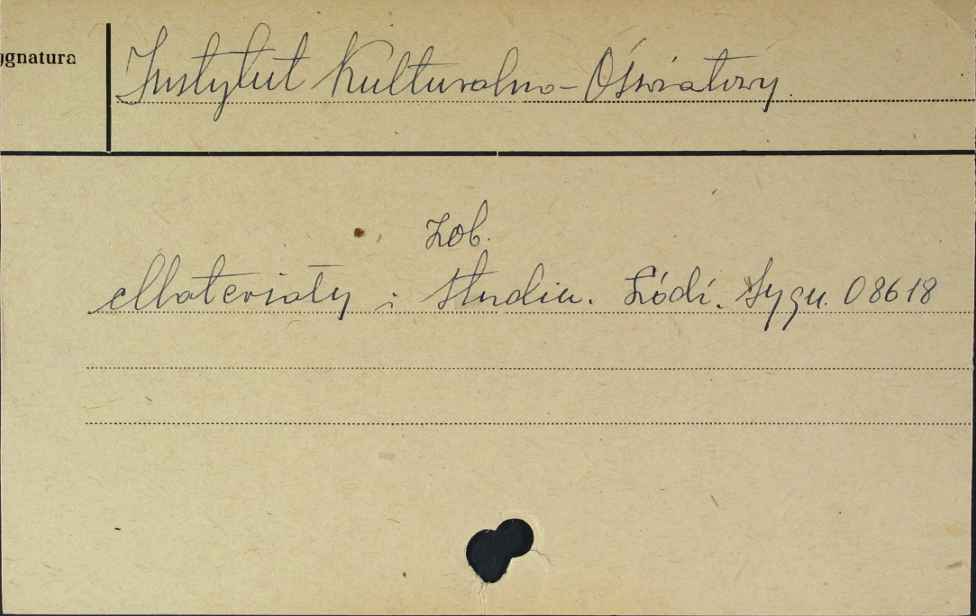 ygnatura
Instytut Kulturalno-Oświatowy.
Zob.
Materiały i Studia. Łódź. Sygn. 08618